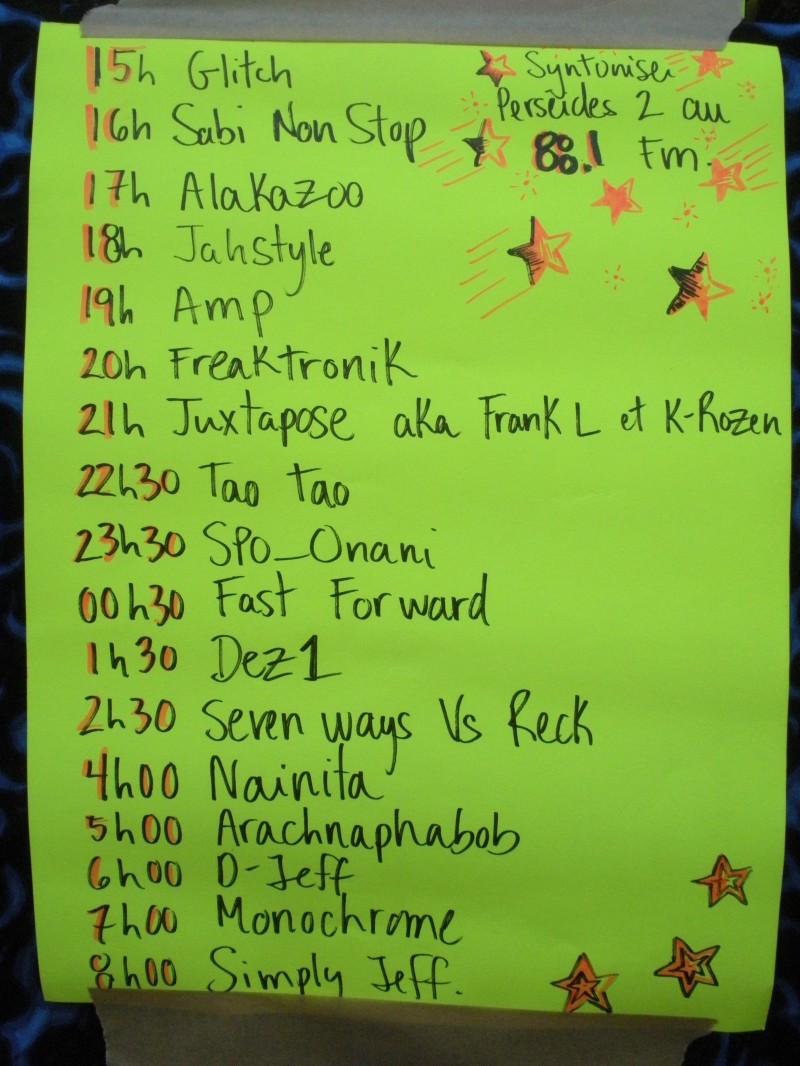 15h Glitch
16h Sabi Non Stop
17h Alakazoo
18h Jahstyle
19h Amp
20h Freaktronik
21h Juxtapose aka Frank L et K-Rozen
22h30 Tao Tao
23h30 Spo_Onani
00h30 Fast Forward
1h30 Dez1
2h30 Seven ways Vs Reck
4h00 Nainita
5h00 Arachnaphabob
6h00 D-Jeff
7h00 Monochrome
8h00 Simply Jeff.
Syntoniser
Perséides 2 au
88.1 Fm.